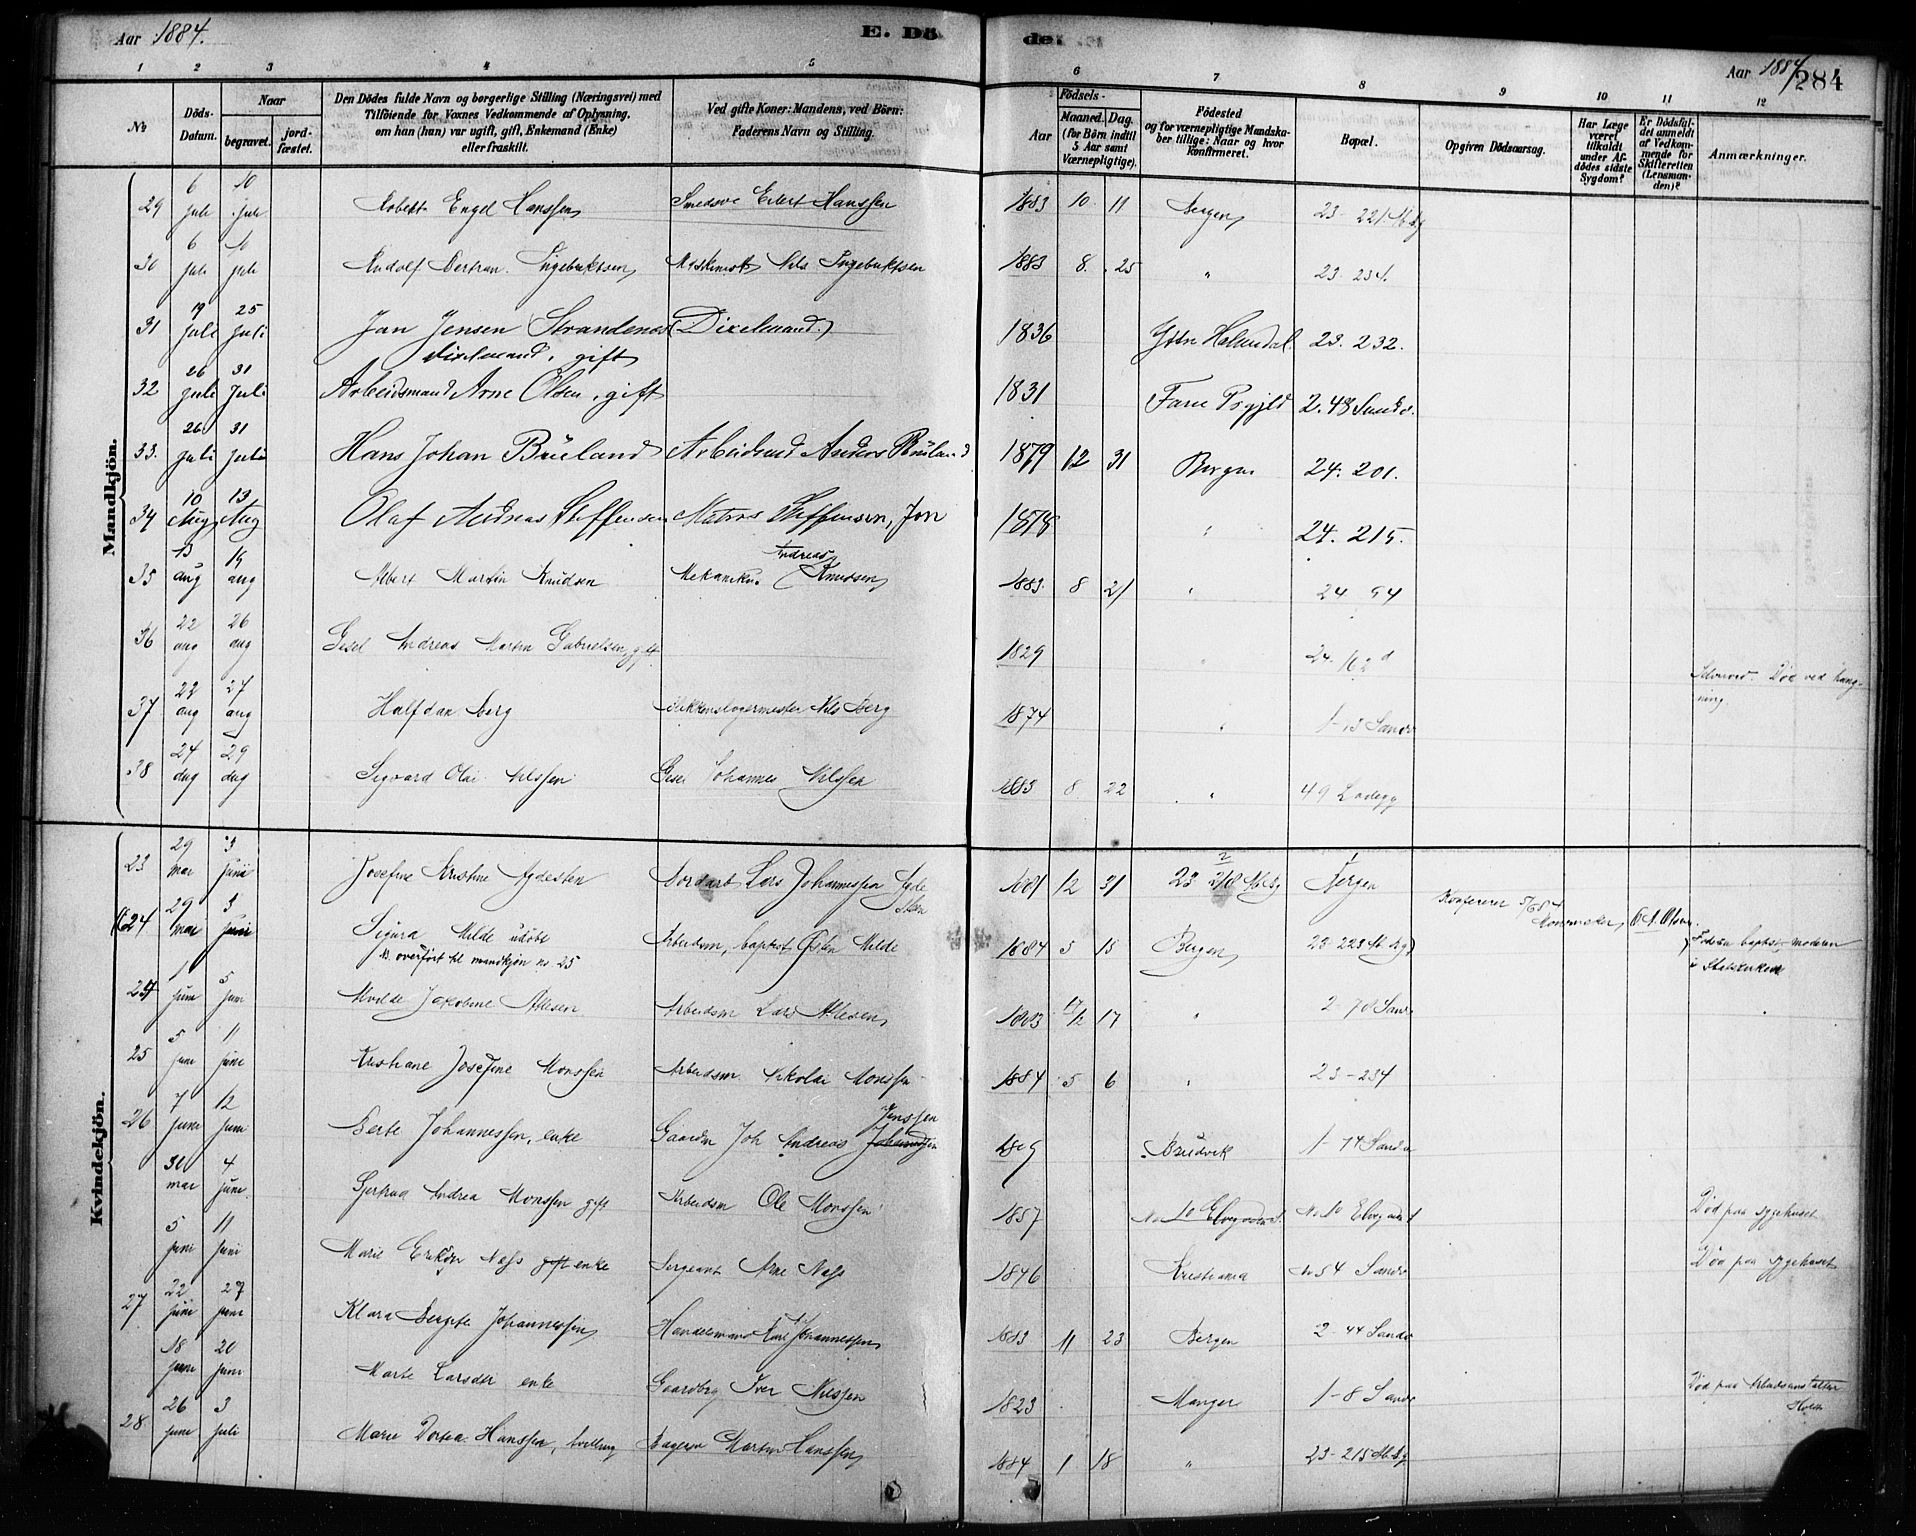 Aar 1884.
E. Dö
de
Aar 1884
284
1 2 3 4 5 6 7 8 9 10 11 12
No
Döds-Datum.
Naar
begravet.
jord-fæstet.
Den Dödes fulde Navn og borgerlige Stilling (Næringsvei) med
Tilföiende for Voxnes Vedkommende af Oplysning,
om han (hun) var ugift, gift, Enkemand (Enke)
eller fraskilt.
Ved gifte Koner: Mandens, ved Börn:
Faderens Navn og Stilling.
Födsels-
Aar
Maaned. Dag.
(for Börn indtil
5 Aar samt
Værnepligtige).
Födested
og for værnepligtige Mandska-
ber tillige: Naar og hvor
Konfirmeret.
Bopæl.
Opgiven Dödsaarsag.
Har Læge
været
tilkaldt
under Af-
dödes sidste
Sygdom?
Er Dödsfal-
det anmeldt
af Vedkom-
mende for
Skifteretten
(Lensman-
den)?
Anmærkninger.
Mandkjön.
29 6 juli 10 juli Robert Engel Hanssen Smedsv Eilert Hanssen 1883 10 11 Bergen 23-221
30 6 juli 10 juli Rudolf Bertran. Ingebriktsen Maskinist Nils Ingebriktsen 1883 8. 25 " 23-234.
31 19 juli 25 juli Jan Jensen Strandenæs (Dixelmand.) 1836 Yttre Holmedal 23. 232.
dixelmand, gift
32 26 juli 31 juli Arbeidsmand Arne Olsen, gift 1831 2.48 Sandv.
33. 26 juli 31 juli Hans Johan Brüland Arbeidsmd Anders Brüland 1879 12 31 Bergen 24. 201.
34 10 Aug 13 Aug Olaf Andreas Steffensen Matros Steffensen, Jon 1878 " 24. 215.
35 13 aug 19 aug Albert Martin Knudsen Mekaniker. Andreas Knudsen 1883. 8 21 " 24 94
36 22 aug 26 aug Gesel Andreas Martin Gabrielsen, gift 1829 " 24. 162 d
37 22 aug 27 aug Halfdan Berg Blikkenslagermester Nils Berg 1874 " 1-13 Sandv Selvmord. Död ved hæng-
ning.
38 24 aug 29 aug Sigvard Olai Nilssen Gesel Johannes Nilssen 1883 8 22 " 49 Ladegg
Kvindekjön.
23 29 mai 3 juni Josefine Kristine Agdesten Lars Johannessen Agde
sten 1881 12 31 23 218 Bergen
24 29 mai 3 juni Sigura Milde udöbt Arbeidsm, baptist Østen Milde 1884 5 18 Bergen 23-223 Konfererer Fader baptist, moderen
er overfört til mandkjön no 25 i Statskirken
24 1 juni 5 juni Jakobine Allesen Arbeidsm Lars Allesen 1883 12 17 " 2-78 Sandv
25 5 juni 11 juni Kristiane Josefine Monssen Arbeidsm. Nikolai Monssen 1884 5 6 " 23-234
26 7 juni 12 juni Berte Johannessen, enke Gaardm Joh Andreas Jenssen 1809 Bruvik 1-74 Sandv
30 mai 4 juni Gjertrud Andrea Monssen gift Arbeidsm Ole Monssen 1857 No 10 Elvegaden No 10 Elvegaden Död paa sygehuset
5 juni 11 juni Marie Erikson Næss gift enke Sergeant Arne Næss 1846 Kristiania No 54 Sandv Död paa sygehuset
27 22 juni 27 juni Klara Bergite Johannessen Handelsmand Karl Johannessen 1883 11 23 Bergen 2-44 Sandv
18 juni 20 juni Marte Larsdtr enke Gaardbrg Iver Nilssen 1823 Manger 1-8 Sandv Död paa Arbeidsanstalten
28 26 juni 3 juli Marie Dortea Hanssen, tvilling Bagersv Martin Hanssen 1884 1 18 " 23-215